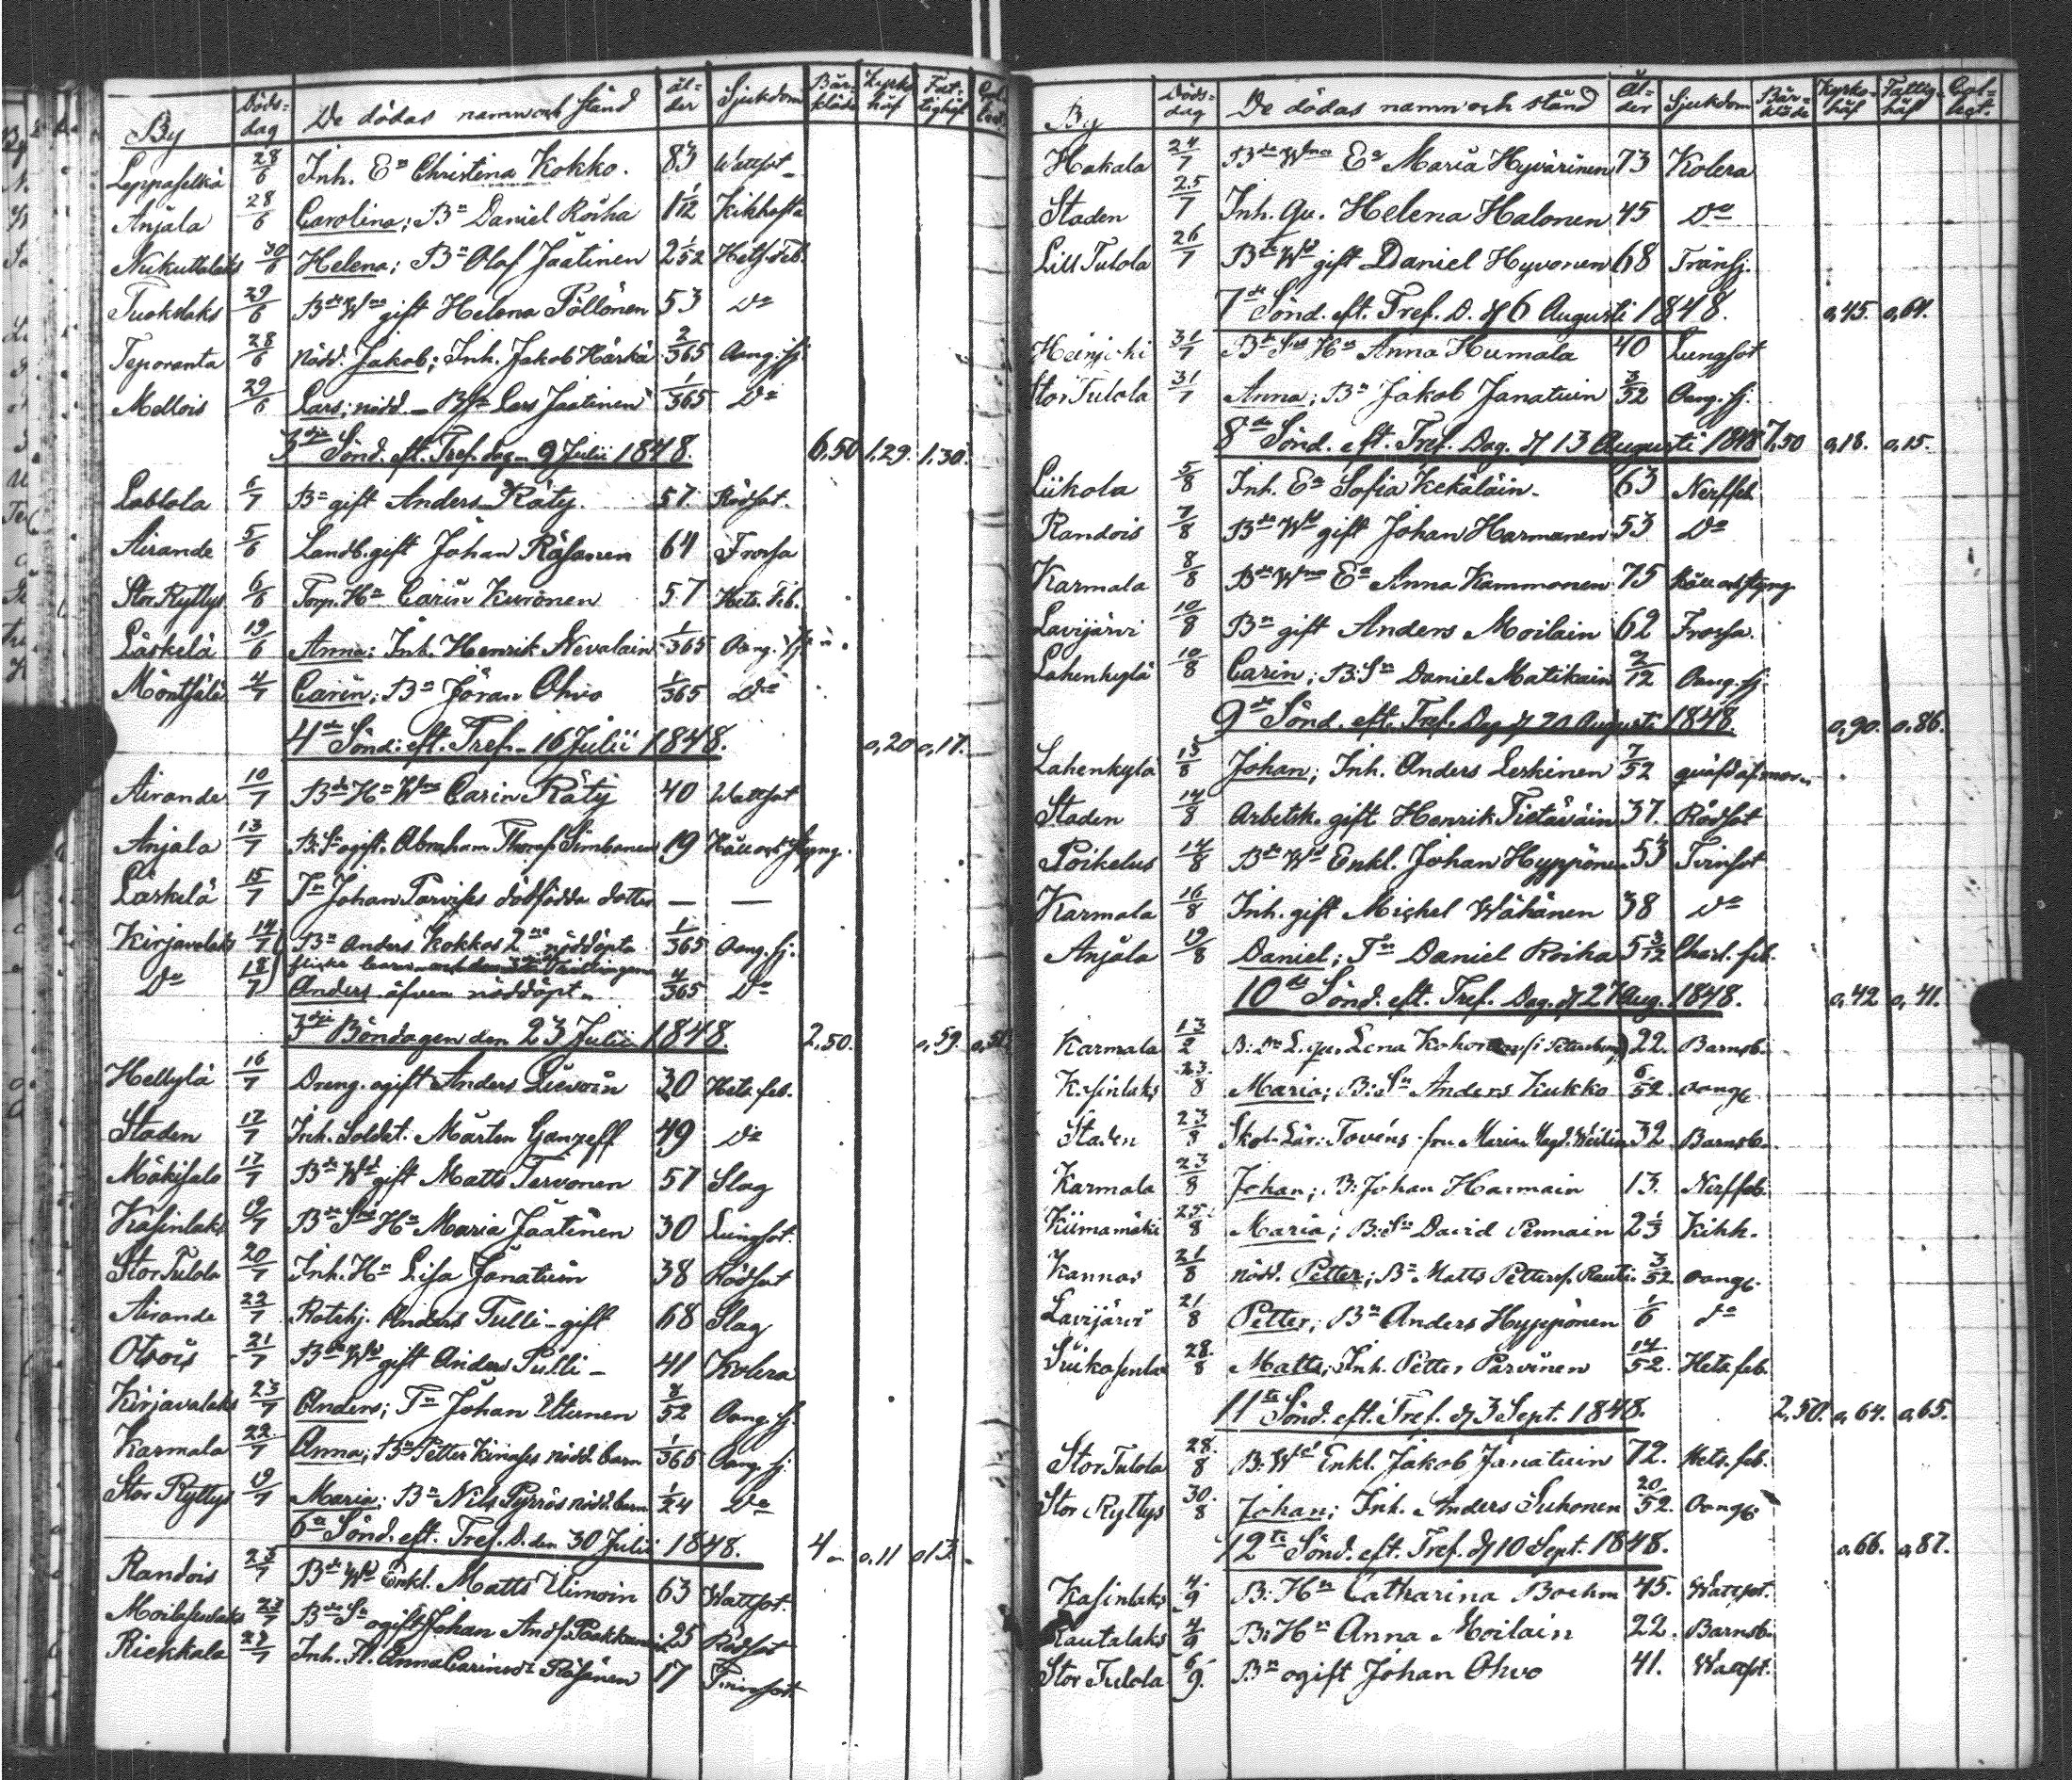 By Döds-dag De dödas namn och stånd ål-der Sjukdom Bår-kläde Kyrko håf Fat-tighåf Col-lect.
Leppäselkä 28/6 Inh. Ea Christina Kokko. 83 Wattsot
Anjala 28/6 Carolina; Bn Daniel Roiha 1 1/12 Kikhosta
Nukuttalaks 30/6 Helena; Bn Olof Jaatinen 2 1/52 Hets. Feb.
Tuokslaks 29/6 Bde Wna gift Helena Pöllönen 53 Do
Teporanta 28/6 Nödd. Jakob; Inh. Jakob Härkä 2/365 Oang. sj.
Mellois 29/6 Lars; nödd. Lars Jaatinen 1/365 Do
3dje Sönd. eft. Tref. dag. 9 Julii 1848. 6,50 1,29. 1,30.
6/7 Bn gift Anders Räty. 57. Rödsot.
Airande 5/6 Landb. gift Johan Räsanen 64 Frossa
Stor Ryttys 6/6 Torp. Hn Carin Kuronen 57 Hets. Feb.
Läskelä 19/6 Anna; Inh. Henrik Nevalain 1/365 Oang. sj.
4/7 Carin; Bn Jöran Ohvo 1/365 Do
4de Sönd. eft. Tref. 16 Julii 1848. 0,20 0,17.
Airande 10/7 Bde Hn Wna Carin Räty 40 Wattsot
Anjala 13/7 B: Sn ogift. Abraham Simbonen 19 Håll och styng.
Läskelä 15/7 Tn Johan Parvises dödfödda dotter — —
Kirjavalaks 14/7 Bn Anders Kokkos 2ne nöddöpta 1/365 Oang. sj.
flicke barn
Do 18/7 Anders äfven nöddöpt 4/365 Do
3dje Böndagen den 23 Julii 1848. 2,50. 0,59.
Hellylä 16/7 Dreng. ogift Anders Lievoin 30 Hets. feb.
Staden 17/7 Inh. Soldat. Mårten Ganzeff 49 Do
Mäkisalo 17/7 Bde Wd gift Matts Tervonen 57 Slag
Käsinlaks 19/7 Bde Sna Hn Maria Jaatinen 30 Lungsot.
Stor Tulola 20/7 Inh. Hn Lisa Janatuin 38 Rödsot
Airande 22/7 Rotehj. Anders Tulli - gift 68 Slag
Otsois 21/7 Bde Wd gift Anders Pulli - 41 Kolera
Kirjavalaks 23/7 Anders; Tn Johan 3/52 Oang. sj.
Karmala 22/7 Anna; Bn Petter nödd. barn 1/365 Oang. sj.
Stor Ryttys 19/7 Maria; Bn Nils Pyrrös nödd. barn 1/24 Do
6te Sönd. eft. Tref. D. den 30 Julii 1848. 4 - 0,11 0,13.
Randois 23/7 Bde Wd Enkl. Matts Uimoin 63 Wattsot.
23/7 Bde Sn ogift Johan 25 Rödsot
Riekkala 23/7 Inh. Fl. Anna Carin Räsänen 17 Trinsot
By Döds-dag De dödas namn och stånd Ål-der Sjukdom Bår-kläde Kyrko-håf Fattig-håf Col-lect.
Hakala 24/7 Bde Wna Ea Maria Hyvärinen 73 Kolera
Staden 25/7 Inh. Qv. Helena Halonen 45 Do
Lill Tulola 26/7 Bde Wd gift Daniel Hyvonen 68 Tränsj.
7de Sönd. eft. Tref. D. d 6 Augusti 1848. 0,45. 0,64.
Heinjoki 31/7 Bde Sna Hn Anna Humala 40 Lungsot
Stor Tulola 31/7 Anna; Bn Jakob Janatuin 3/52 Oang. sj.
8de Sönd. eft. Tref. Dag. d 13 Augusti 1848 7,50 0,18. 0,15.
Liikola 5/8 Inh. Ea Sofia Kekäläin. 63 Nerffeb
Randois 7/8 Bde Wd gift Johan Harmanen 53 Do
Karmala 8/8 Bde Wna Ea Anna Kammonen 75 Håll och styng
Lavijärvi 10/8 Bn gift Anders Moilain 62 Frossa.
Lahenkylä 10/8 Carin; B: Sn Daniel Matikain 2/12 Oang. sj.
9de Sönd. eft. Tref. Dag d 20 Augusti 1848. 0,90. 0,86.
Lahenkylä 13/8 Johan; Inh. Anders Leskinen 7/52 qväfd af mor
Staden 14/8 Arbetsk. gift Henrik Tietäväin 37. Rödsot
Poikelus 14/8 Bde Wd Enkl. Johan Hyppönen 53 Trinsot
Karmala 16/8 Inh. gift Michel Wähänen 38 Do
Anjala 19/8 Daniel; Tn Daniel Roiha 5 3/12 Charl. feb.
10de Sönd. eft. Tref. Dag. d 27 Aug. 1848. 0,42 0,41.
Karmala 13/2 B: Dn L. qv. Lena (i Petersburg) 22. Barnsb.
Kasinlaks 23./8 Maria; B: Sn Anders Kukko 6/52. oang.
Staden 23/8 Skol. Lär. Tovéns fru Maria Magd. 32. Barnsb.
Karmala 23/8 Johan; B: Johan Harmain 13. Nerffeb.
Kiimamäki 25./8 Maria; B: Sn David Pennain 2 1/3 Kikh.
Kannas 21/8 nödd. Petter; Bn Matts Petters. Rauti. 3/52. oang.
Lavijärvi 21/8 Petter; Bn Anders Hyppönen 1/6 do
28./8 Matts; Inh. Petter Parvinen 14/52. Hets feb.
11te Sönd. eft. Tref. d 3 Sept. 1848. 2,50. 0,64. 0,65.
Stor Tulola 28./8 B: Wd Enkl. Jakob Janatuin 72. Hets. feb.
Stor Ryttys 30./8 Johan; Inh. Anders Suhonen 20/52. Oang.
12te Sönd. eft. Tref. d 10 Sept. 1848. 0,66. 0,87.
Kasinlaks 4./9 B: Hn Catharina Boehm 45. Wattsot.
Rautalaks 4/9 B: Hn Anna Moilain 22. Barnsb.
Stor Tulola 6/9. Bn ogift Johan Ohvo 41. Wattsot.